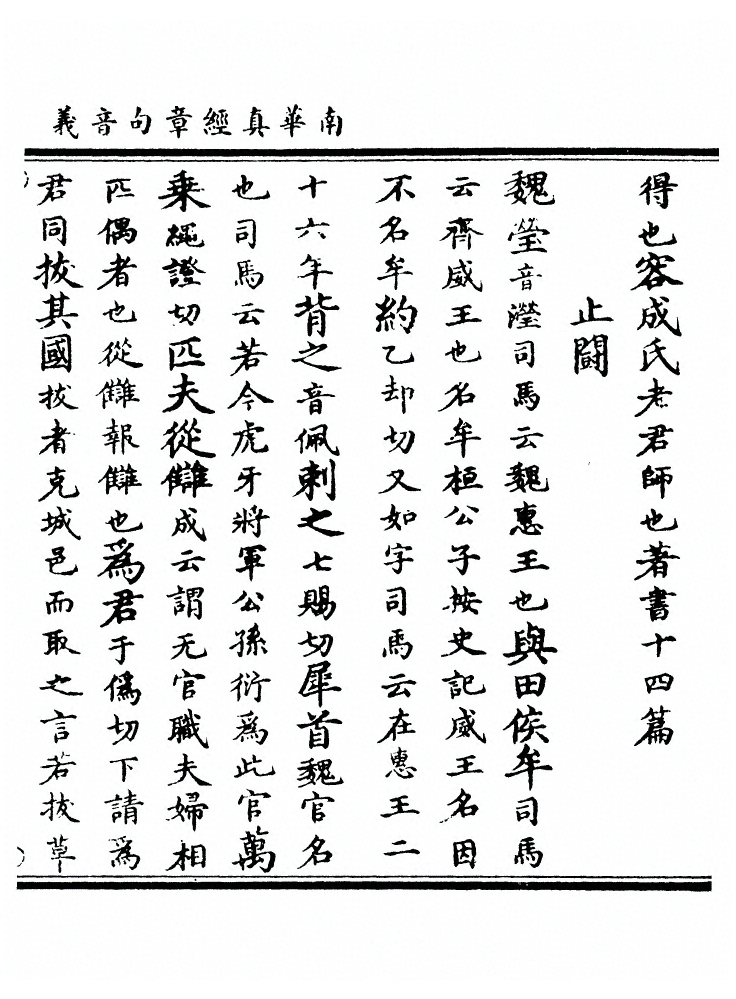 南華真經章句音義
得也容成氏老君師也著書十四篇
止鬪
魏瑩音瀅司馬云魏惠王也與田侯牟司馬
云齊威王也名牟桓公子按史記威王名因
不名牟約乙却切又如字司馬云在惠王二
十六年背之音佩刺之七賜切犀首魏官名
也司馬云若今虎牙將軍公孫衍爲此官萬
乗繩證切匹夫從讎成云謂无官職夫婦相
匹偶者也從讎報讎也爲君于僞切下請爲
君同拔其國拔者克城邑而取之言若拔草